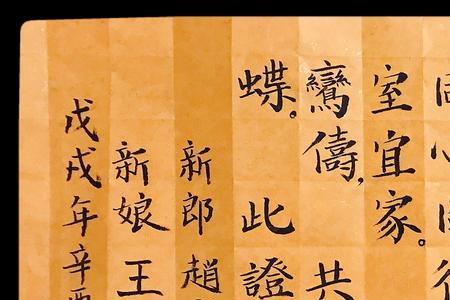 室宜家。
鸞儔,共
蝶。此證
新郎趙
新娘王
戊戌年辛酉